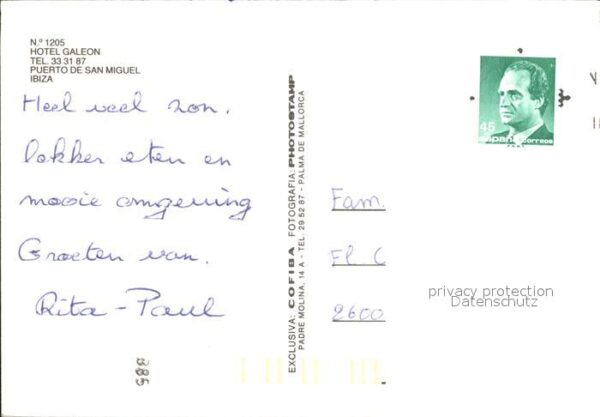 N.º 1205
HOTEL GALEON
TEL. 33 31 87
PUERTO DE SAN MIGUEL
IBIZA
Heel veel zon.
lekker eten en
mooie omgeving
Groeten van.
Rita - Paul
EXCLUSIVA: COFIBA FOTOGRAFIA: PHOTOSTAMP
PADRE MOLINA, 14 A - TEL. 29 52 87 - PALMA DE MALLORCA
45
españa correos
Fam.
Fl C
2600
privacy protection
Datenschutz